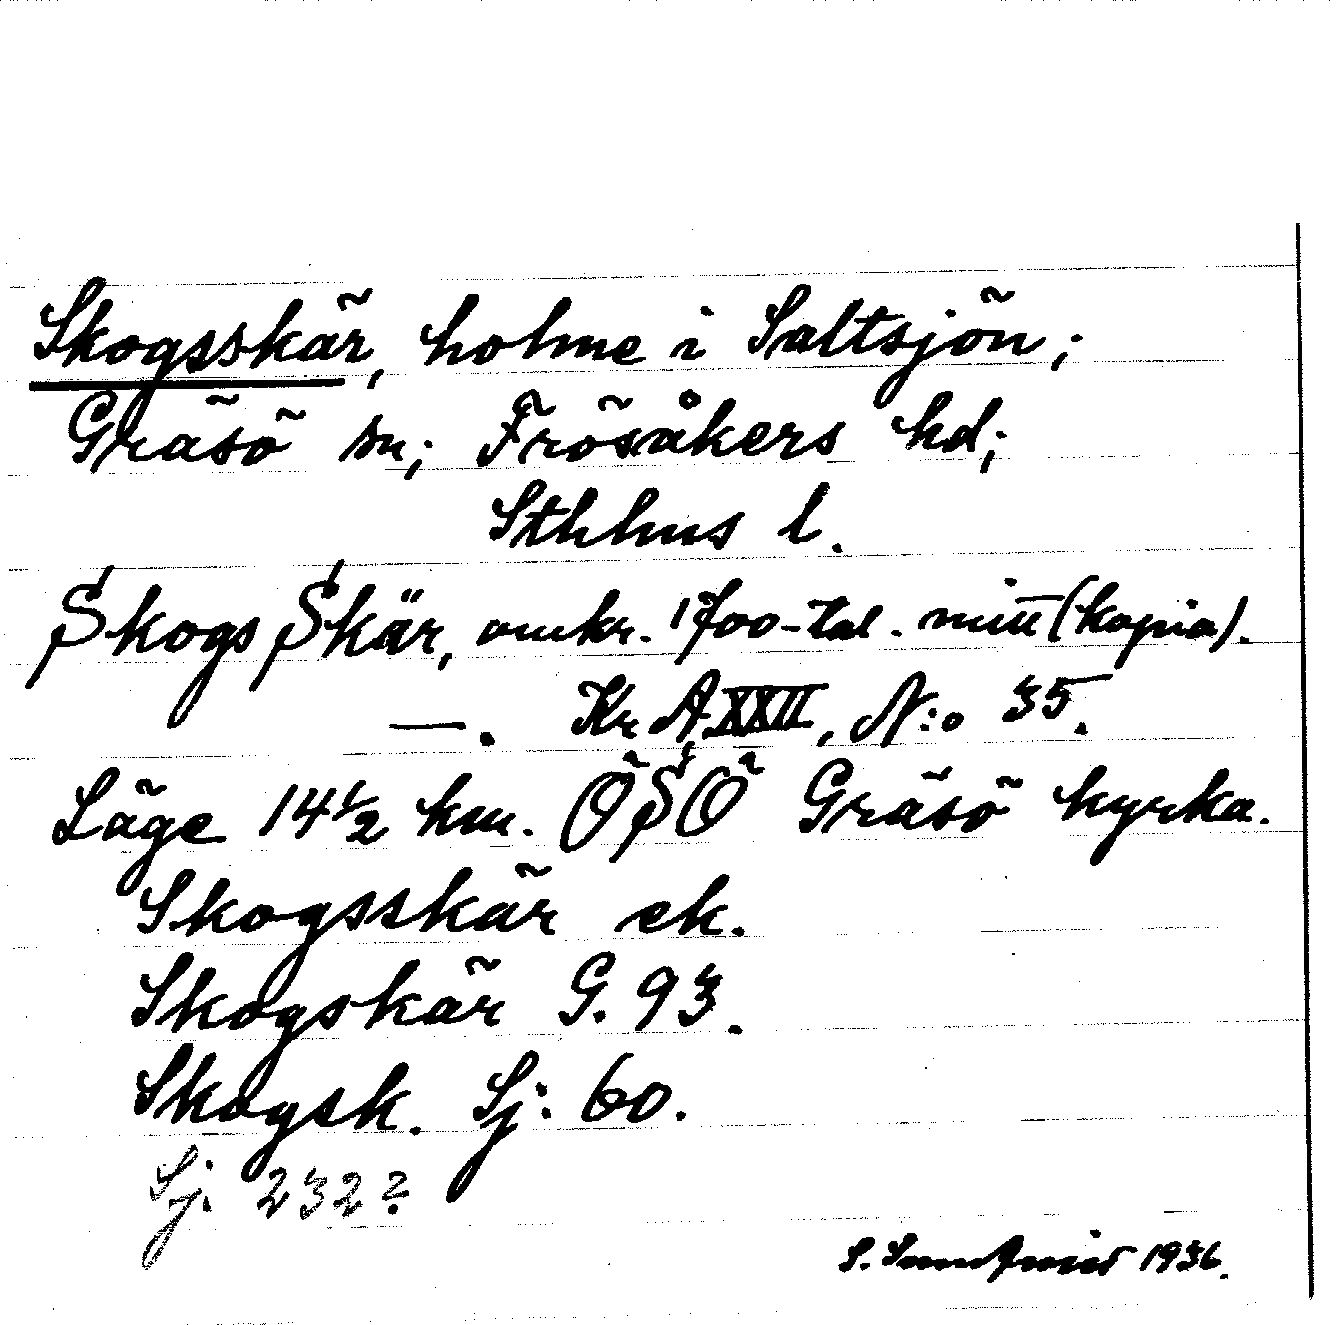 Skogsskär, holme i Saltsjön;
Gräsö sn; Frösåkers hd;
Sthlms l.
Skogs Skär, omkr. 1700-tal. mitt (kopia).
—. Kr. A. XXII, N:o 35.
Läge 14 1/2 km. ÖSÖ Gräsö kyrka.
Skogsskär ek.
Skogskär G. 93.
Skogsk. Sj: 60.
Sj. 232?
S. Sundqvist 1936.